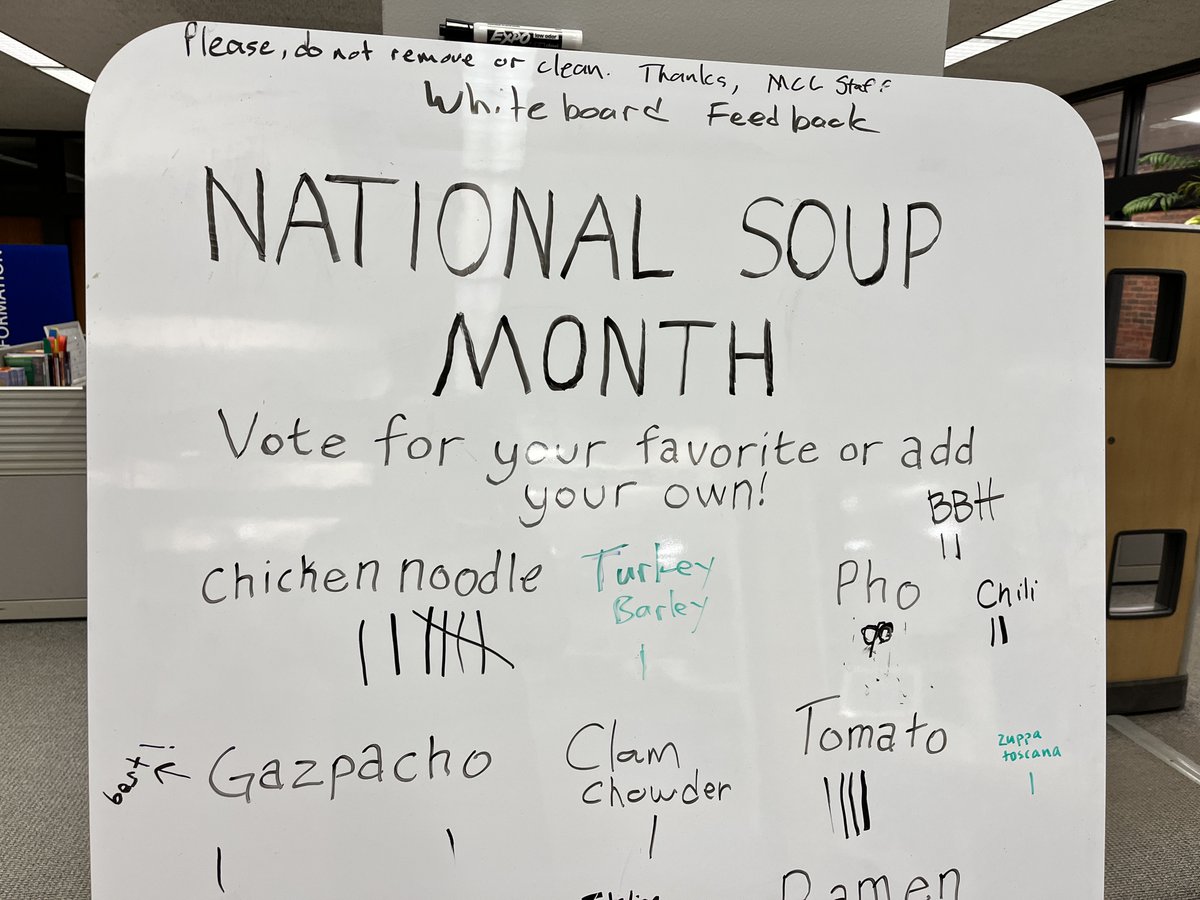 EXPO low odor
Please, do not remove or clean. Thanks, MCL Staff
White board Feedback
NATIONAL SOUP
MONTH
Vote for your favorite or add
your own!
BBH
chicken noodle
Turkey
Barley
Pho
Chili
best!
Gazpacho
Clam
chowder
Tomato
zuppa
toscana
Ramen